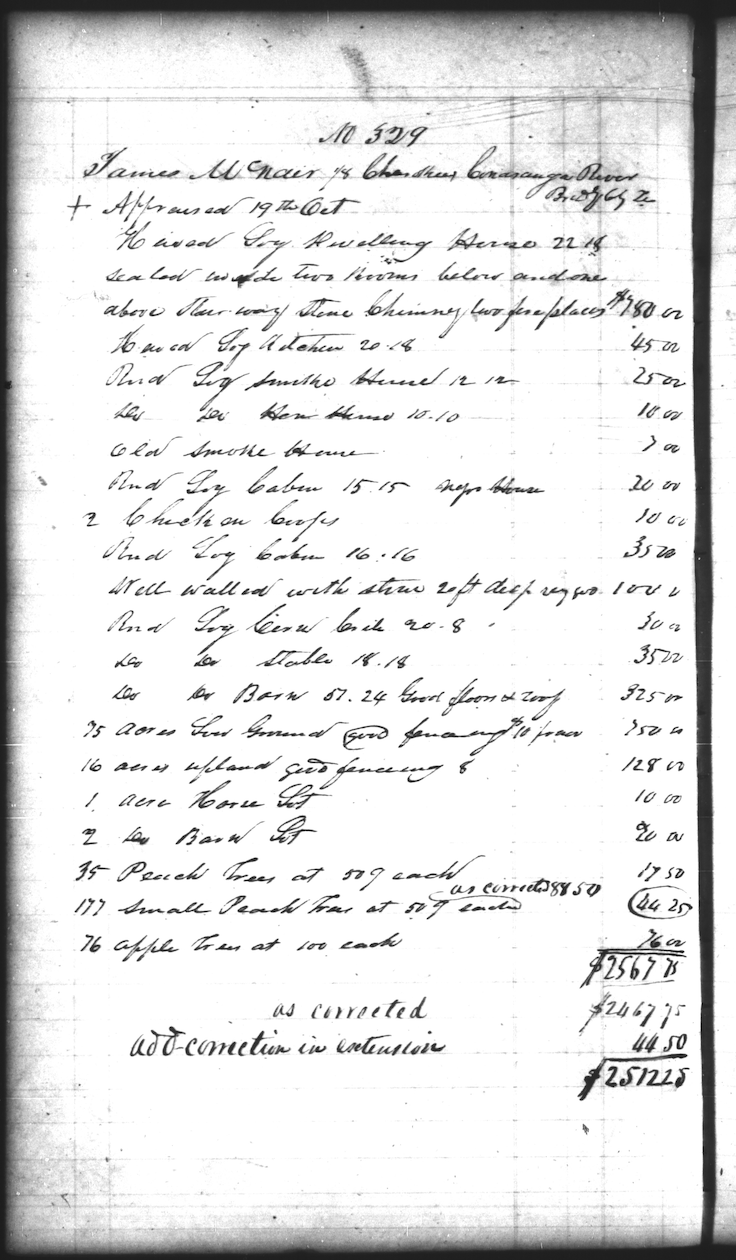 No 329
James McNair 1/8 Cherokee Conasauga River
Bradley Cty Te
+ Appraised 19th Oct
Hewed Log Dwelling House 22 18
sealed inside two Rooms below and one
above stair way stone Chimney two fireplaces $780 00
Hewed Log Kitchen 20.18 45 00
Rnd Log smoke House 12 12 25 00
Do Do Hen House 10.10 10 00
Old smoke House 7 00
Rnd Log Cabin 15.15 negro House 20 00
2 Chicken Coops 10 00
Rnd Log Cabin 16.16 35 00
Well walled with stone 20ft deep 100 0
Rnd Log Corn Crib 20.8 30 0
Do Do stable 18.18 35 00
Do Do Barn 57.24 Good floors & roof 325 00
75 Acres Low Ground good fenceing $10 pr acr 750 00
16 acres upland good fenceing 8 128 00
1. Acre Horse Lot 10 00
2 Do Barn Lot 20 00
35 Peach Trees at 50 ₵ each 17 50
as corrected 88 50
177 small Peach Trees at 50 ₵ each 44 25
76 apple Trees at 100 each 76 00
$2567 75
as corrected $2467 75
add correction in extension 44 50
$2512 25